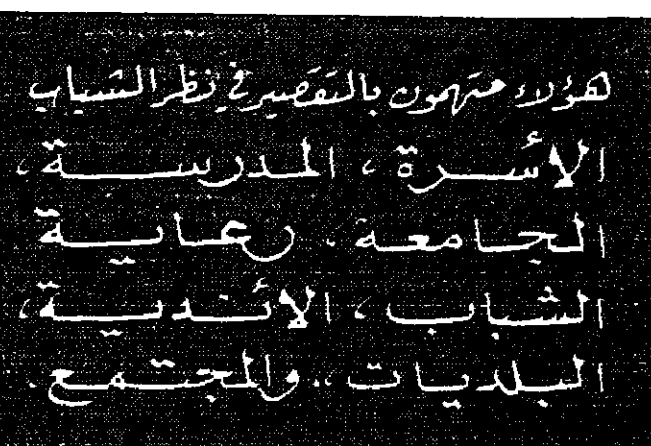 هؤلاء متهمون بالتقصير في نظر الشباب
الأسرة ، المدرسة ،
الجامعة . رعاية
الشباب ، الأندية ،
البلديات .. والمجتمع .